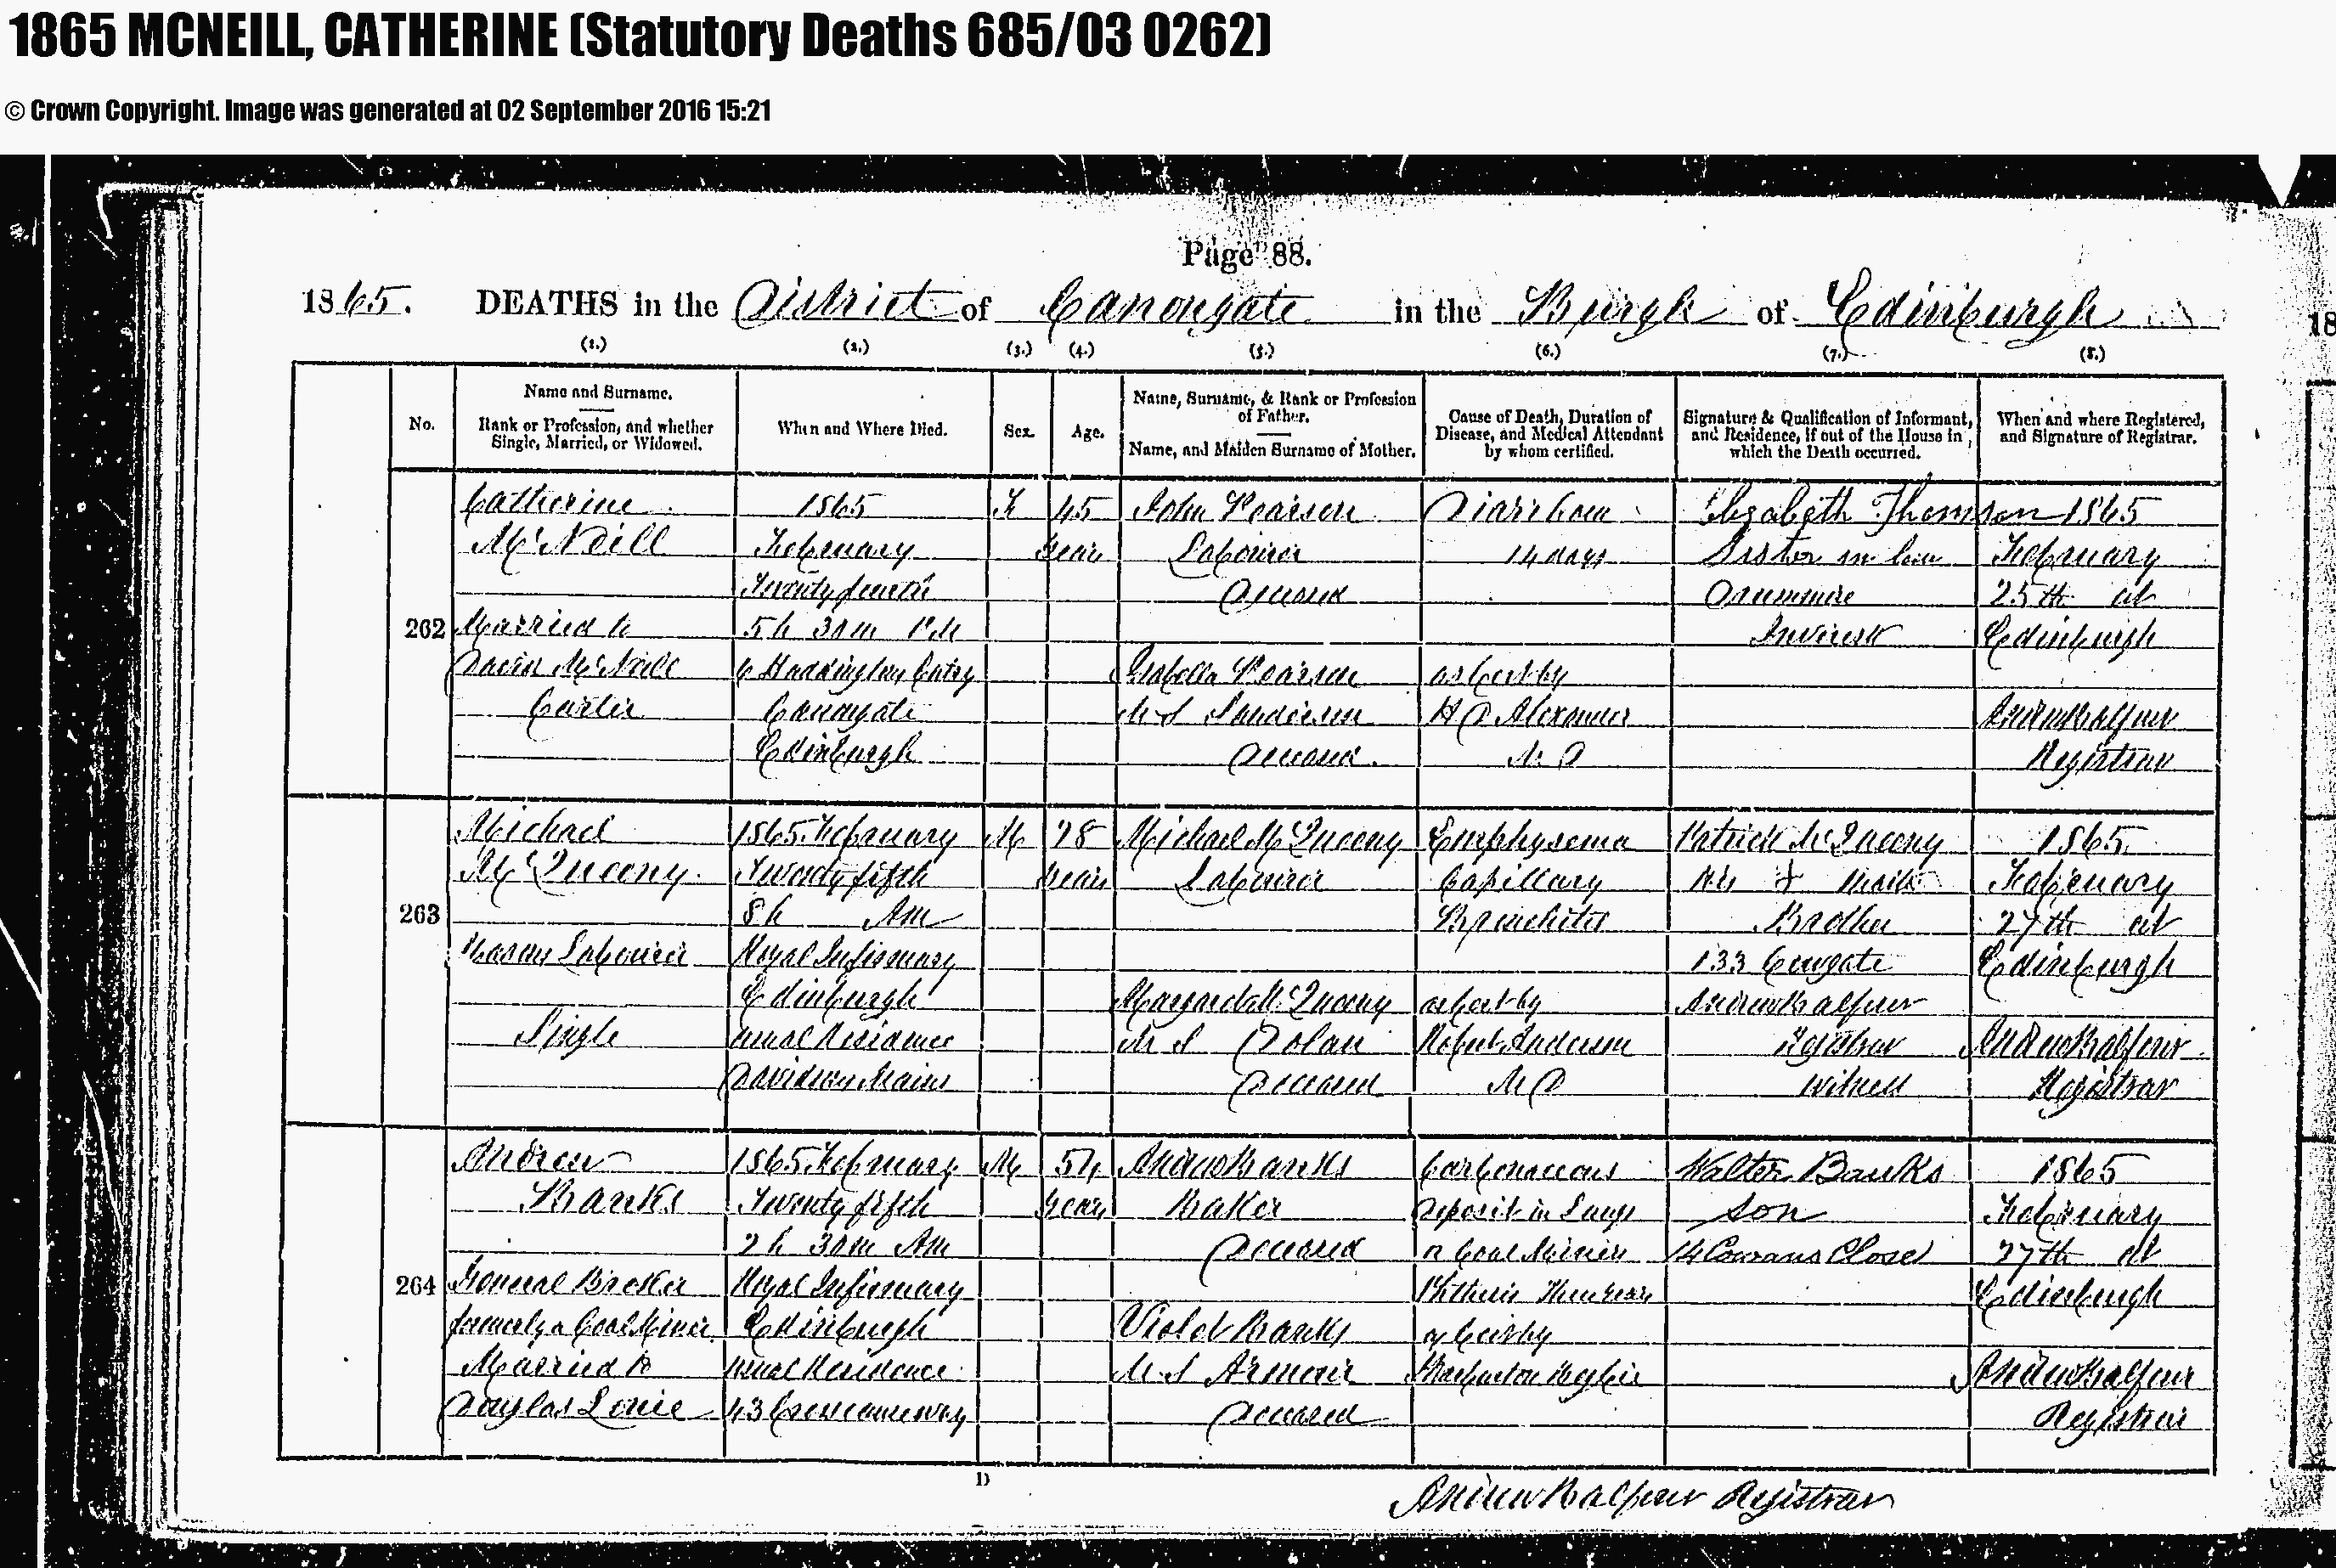 1865 MCNEILL, CATHERINE (Statutory Deaths 685/03 0262)
© Crown Copyright. Image was generated at 02 September 2016 15:21
Page 88.
1865. DEATHS in the District of Canongate in the Burgh of Edinburgh
(1.) (2.) (3.) (4.) (5.) (6.) (7.) (8.)
No.
Name and Surname.
Rank or Profession, and whether
Single, Married, or Widowed.
When and Where Died.
Sex.
Age.
Name, Surname, & Rank or Profession
of Father.
Name, and Maiden Surname of Mother.
Cause of Death, Duration of
Disease, and Medical Attendant
by whom certified.
Signature & Qualification of Informant,
and Residence, if out of the House in
which the Death occurred.
When and where Registered,
and Signature of Registrar.
262
Catherine
McNeill
Married to
David McNeill
Carter
1865
February
Twenty fourth
5h 30m PM
6 Haddington Entry
Canongate
Edinburgh
F
45
years
John Pearson
Labourer
deceased
Isabella Pearson
M S Sanderson
deceased.
Diarrhoea
14 days
as Cert by
H D Alexander
M D
Elizabeth Thomson
Sister in law
Inveresk
1865
February
25th at
Edinburgh
Andrew Balfour
Registrar
263
Michael
McQueeny.
Masons Labourer
Single
1865 February
Twenty fifth
8h AM
Royal Infirmary
Edinburgh
usual Residence
Davidsons Mains
M
28
years
Michael McQueeny
Labourer
Margaret McQueeny
M S Dolan
deceased
Emphysema
Capillary
Bronchitis
as Cert by
Robert Anderson
M D
Patrick McQueeny
his + mark
Brother
133 Cowgate
Andrew Balfour
Registrar
witness
1865.
February
27th at
Edinburgh
Andrew Balfour
Registrar
264
Andrew
Banks
General Broker
formerly a Coal Miner
Married to
Douglas Lourie
1865 February
Twenty fifth
2h 30m AM
Royal Infirmary
Edinburgh
usual Residence
43 Crosscauseway
M
54
years
Andrew Banks
Baker
deceased
Violet Banks
M.S Armour
deceased
Carbonaceous
deposit in Lungs
a Coal Miners
Phthisis
as Cert by
Walter Banks
Son
14 Cowans Close
1865
February
27th at
Edinburgh
Andrew Balfour
Registrar
D
Andrew Balfour Registrar
18